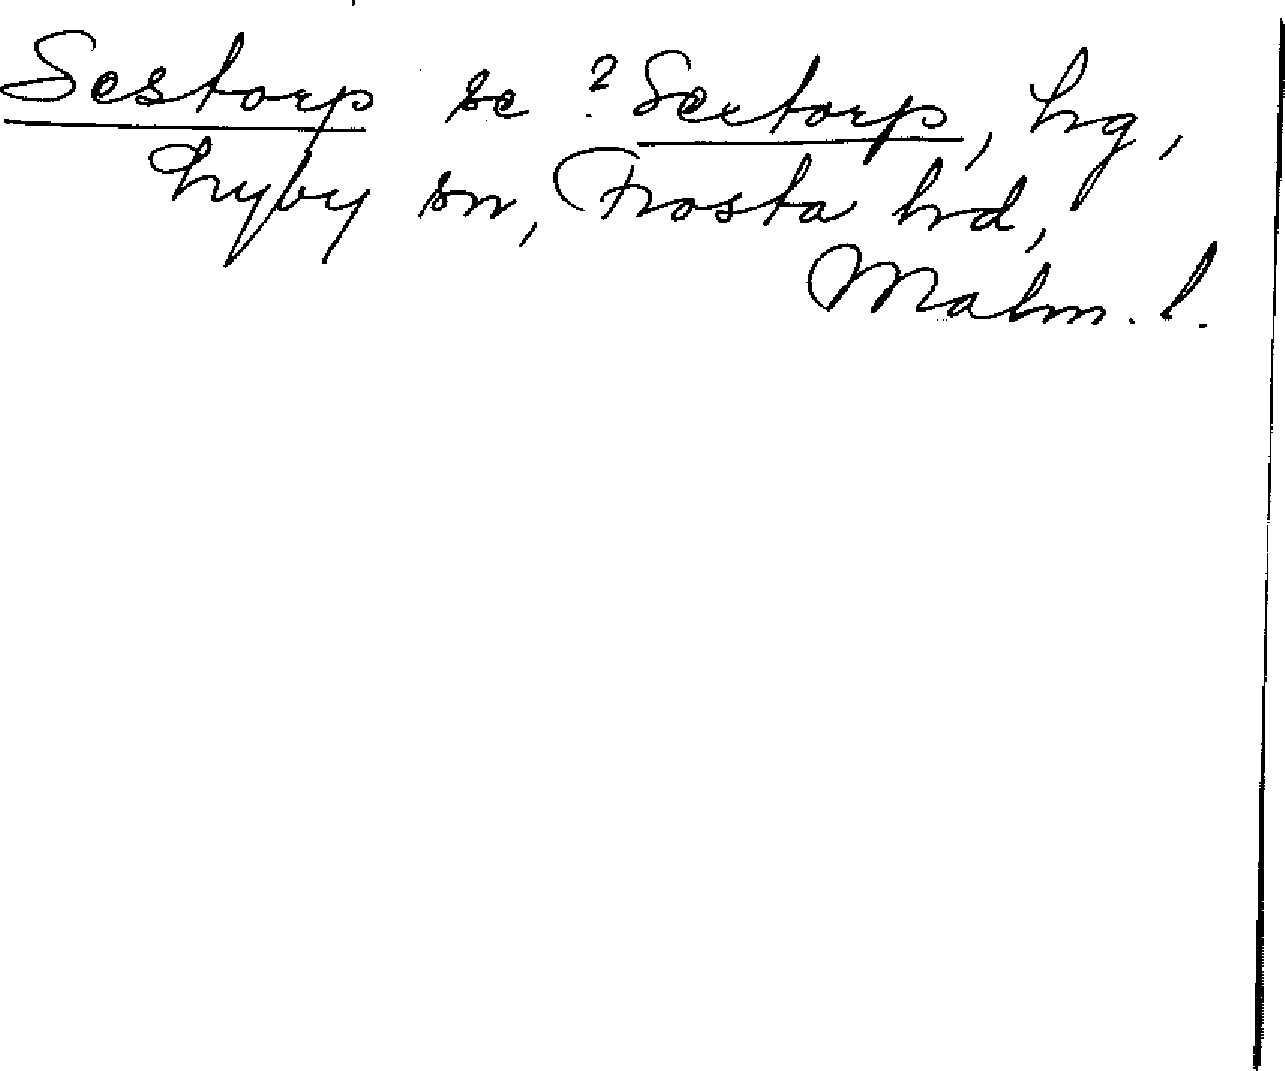 Sestorp se ? Sextorp, hg,
Lyby sn, Frosta hd,
Malm. l.